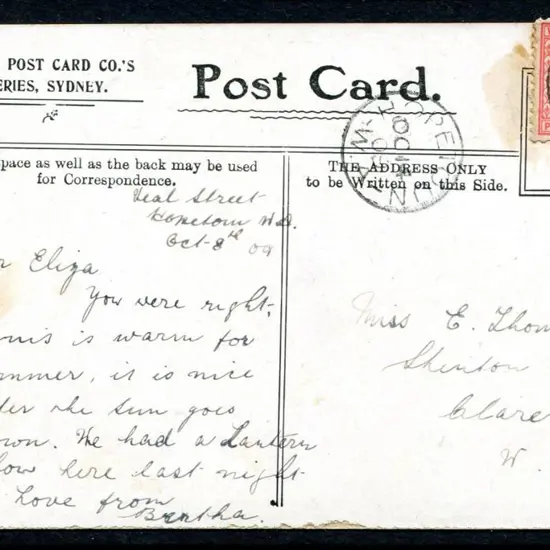 POST CARD CO.'S
ERIES, SYDNEY.
Post Card.
pace as well as the back may be used
for Correspondence.
THE ADDRESS ONLY
to be Written on this Side.
Teal Street
Hopetoun W.A.
Oct-8th 09
r Eliza
You were right,
nnis is warm for
ummer, it is nice
ter the sun goes
own. We had a Lantern
how here last night
Love from
Bertha.
Miss E. Thom
Shenton
Clare
W.